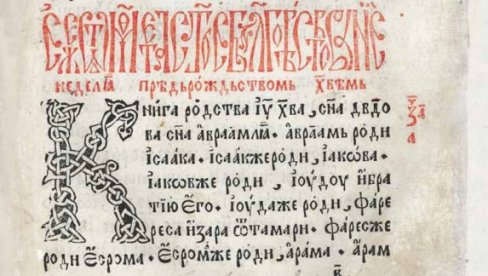 неделїа прѣдьрождьствомь х҃вѣмь
Кнїга родства ї҃у х҃ва, с҃на дв҃дѡ
ва с҃на авраамлꙗ · авраамь роди
їсаака · їсаакжероди, їакова ·
їаковже роди, їоудоу їбра
тїю его · їоудаже роди, фаре
реса їзара ѿтамари · фаресже
роди есрома · есромже роди, арама · арам